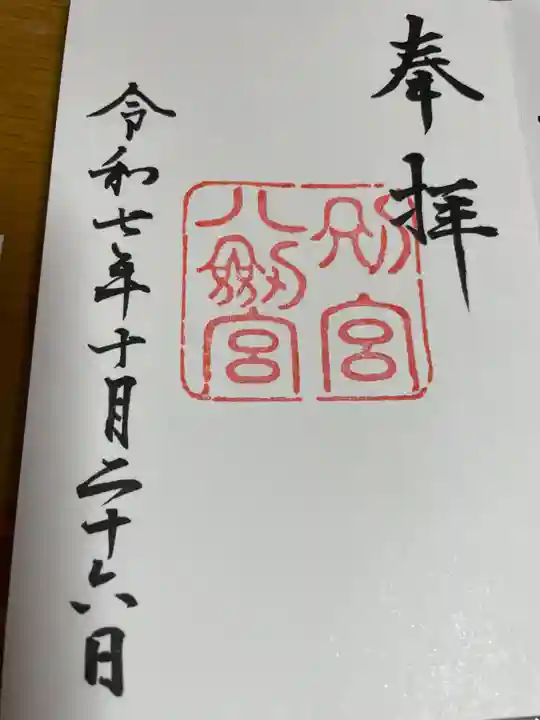 奉拝
別宮
八劔宮
令和七年十月二十六日